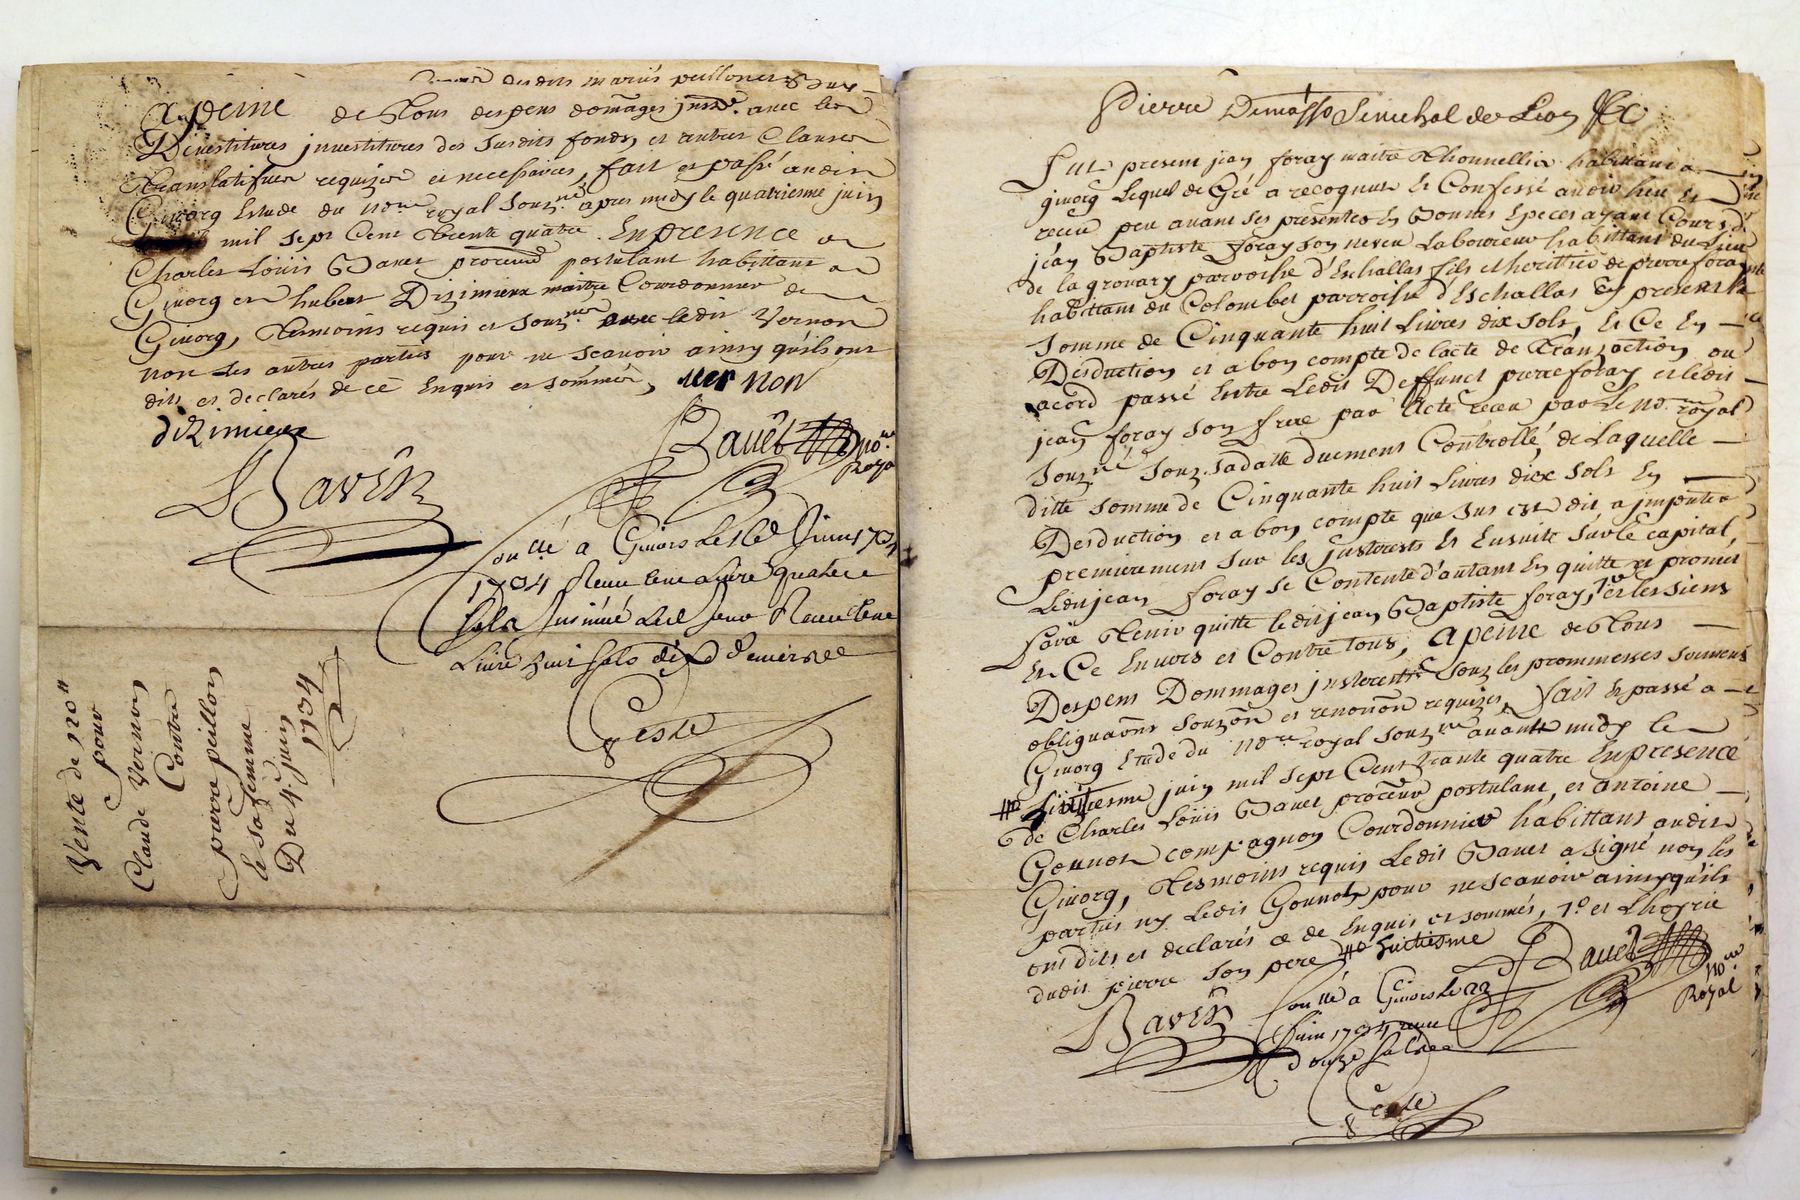 desdits mariés peillonet
A peine de Tous despens domages jnstz. avec les
Devestitures jnvestitures des susdits fonds, et autres Clauses
Translatifves requizes et necessaires, fait et passé audit
Givorg Estude du no.re royal souz.né apres midy le quatriesme juin
mil sept Cent trente quatre. En presence de
Charles Loüis Bavet procureur postulant habittant de
Givorg et hubert Dizimieux maitre Courdonnier de
Givorg, Tesmoins requis et souz.nes avec ledit Vernon
non les autres parties pour ne scavoir ainsy qu'ils ont
dits et declarés de ce Enquis et sommés,
vernon
dizimieux
Bavet no.re Royal
Bavet
con.llé a Givors le
Juin 1734
1734 Receu
livre quatre
sols
Livre huit sols dix deniers
Geste
Vente de 120 ₶
pour
Claude Vernon
Contre
pierre peillon
et sa femme
Du 4.e juin
1734
Pierre Demasso Senechal de Lion &c
Fut present jean foray maitre Thonnellier habitant a
givorg Lequel de Gré a recognut Et Confessé avoir heu et
receu peu avant ses presentes En Bonnes Especes ayant Cours de
jean Baptiste foray son neveu Laboureur habittant du Lieu
de la grouary parroisse d'Eschallas fils et heritier de pierre foray
habittant du Colombet parroisse d'Eschallas Cy present la
somme de Cinquante huit Livres dix sols, Et Ce En
Desduction et a bon compte de l'acte de Tranzaction ou
acord passé Entre Ledit Deffunct pierre foray et ledit
jean foray son frere par Acte receu par Le no.re royal
souz.né souz sa datte duement Controllé, de Laquelle
ditte somme de Cinquante huit Livres dix sols En
Desduction et a bon compte que sus est dit, a jmputer
premierement sur les jnterests Et Ensuite sur le Capital,
Ledit jean foray se Contente d'autant En quitte et promet
faire Tenir quitte ledit jean Baptiste foray, 1.o et les siens
En Ce Envers et Contre tous, A peine de Tous
Despens Dommages jnterests souz les prommesses serments
obligations souzon et renonon requizes, fait Et passé a
Givorg Etude du no.re royal souz.né avant midy le
# huitiesme juin mil sept Cent trante quatre En presence
de Charles Loüis Bavet procureur postulant, et antoine
Gounon compagnon Courdonnier habittant audit
Givorg, Tesmoins requis Ledit Bavet a signé non les
parties ny Ledit Gounon pour ne scavoir ainsy qu'ils
ont dits et declarés de ce Enquis et sommés, 1.o et Lhoyrie
dudit pierre son pere # huitiesme
Bavet no.re Royal
Bavet
con.llé a Givors le 22
Juin 1734 receu
douze sols
Geste